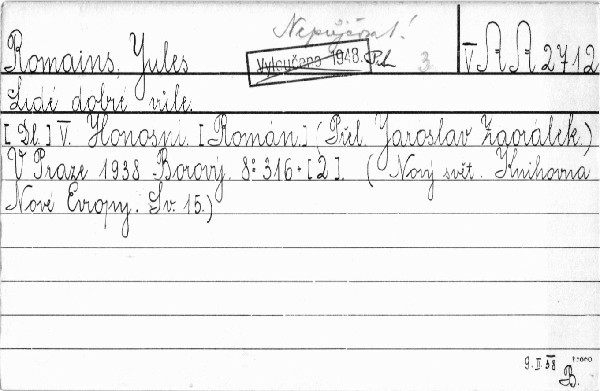 Nepůjčovat!
Romains, Jules
Vyloučeno 1948.
3
V AA 2712
Lidé dobré vůle.
[Dl.] V. Honosní. [Román.] (Přel. Jaroslav Zaorálek.)
V Praze 1938 Borový. 8° 316+[2]. (Nový svět. Knihovna
Nové Evropy. Sv. 15.)
9. II 58
B.